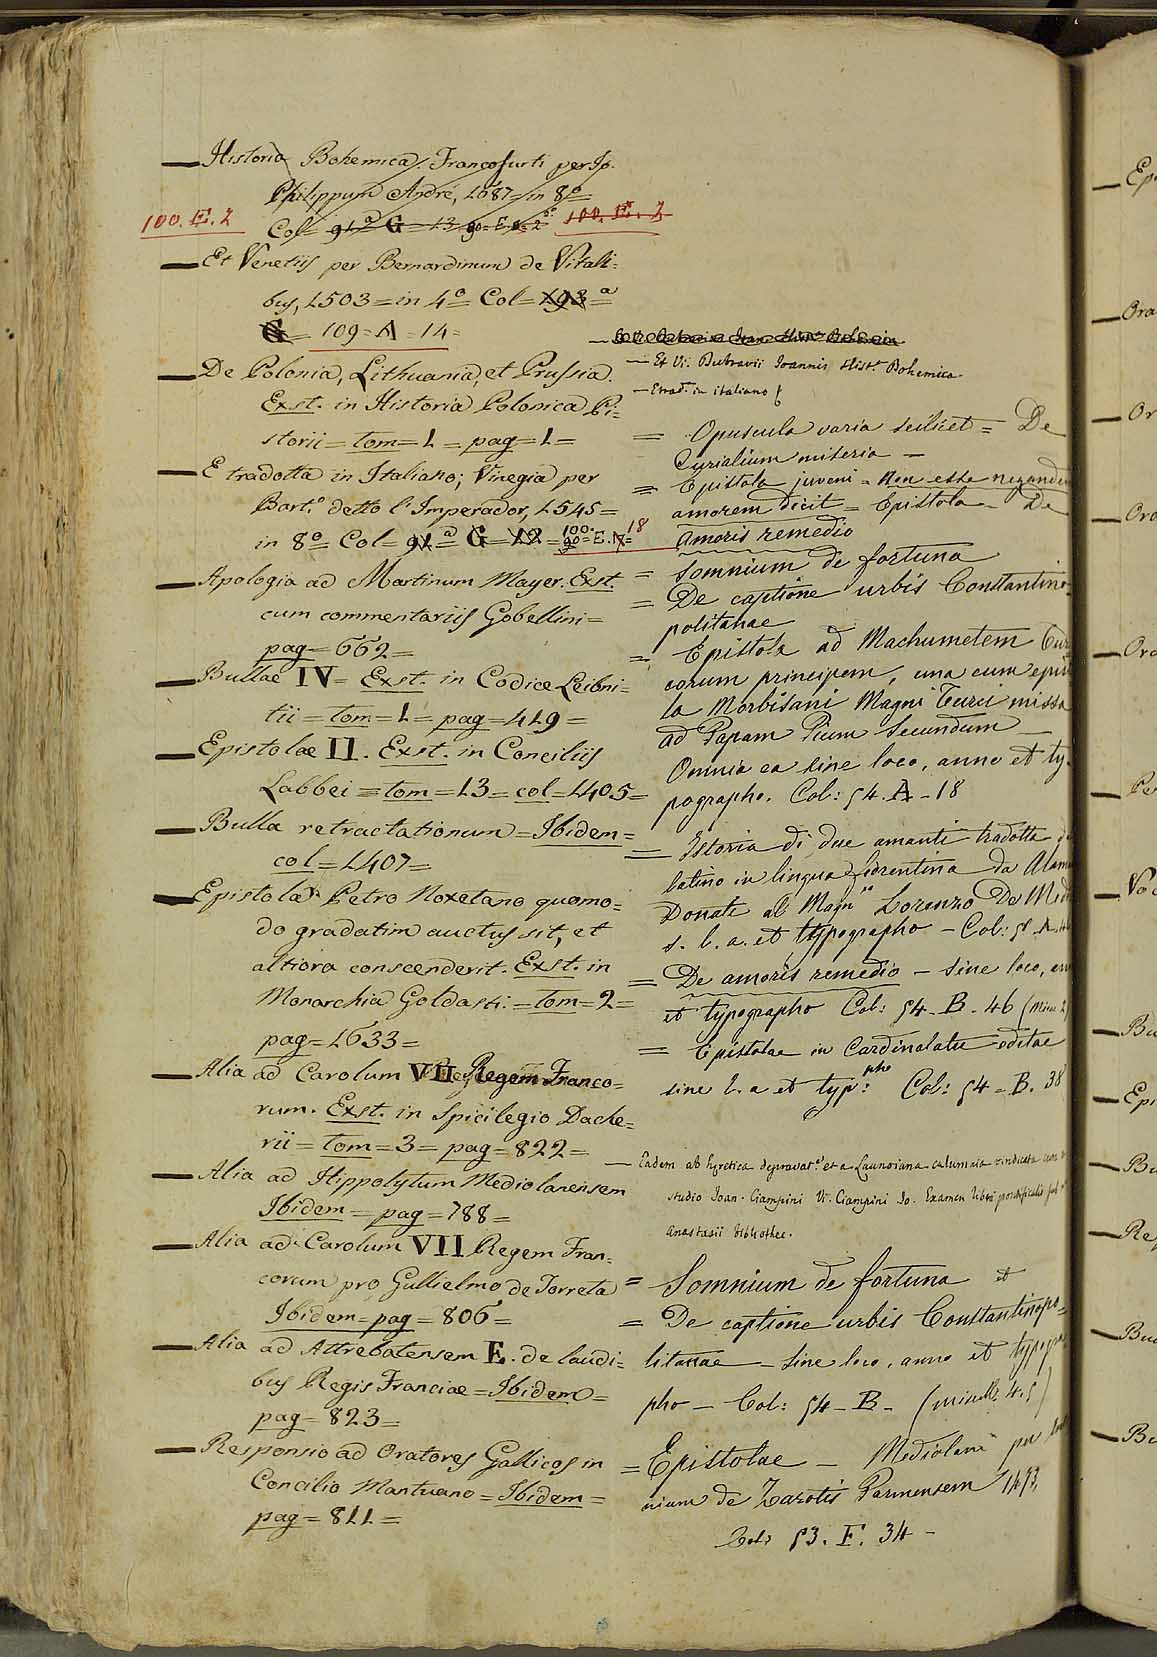 Historia Bohemica. Francofurti per Jo.
Philippum André, 1687= in 8º
100. E. 2
Col= 91 a G = 13 90= E. 2 100. E. 2
Et Venetiis per Bernardinum de Vitali=
bus, 1503= in 4º Col= 193= a
G= 109= A= 14=
De Polonia, Lithuania, et Prussia.
Exst. in Historia Polonica Pi=
storii= tom= 1= pag= 1=
E tradotta in Italiano; Vinegia per
Bart.º detto l'Imperador, 1545=
in 8º Col= 91 a G= 12= 100. E. 18
Apologia ad Martinum Mayer. Exst.
cum commentariis Gobellini=
pag= 662=
Bullae IV= Exst. in Codice Leibni=
tii= tom= 1= pag= 419=
Epistolae II. Exst. in Conciliis
Labbei= tom= 13= col= 1405=
Bulla retractationum= Ibidem=
col= 1407=
Epistola Petro Noxetano quomo=
do gradatim auctus sit, et
altiora conscenderit. Exst. in
Monarchia Goldasti:= tom= 2=
pag= 1633=
Alia ad Carolum VII Regem Franco=
rum. Exst. in Spicilegio Dache=
rii= tom= 3= pag= 822=
Alia ad Hippolytum Mediolanensem
Ibidem= pag= 788=
Alia ad Carolum VII Regem Fran=
corum pro Gullielmo de Torreta
Ibidem= pag= 806=
Alia ad Attrebatensem E. de laudi=
bus Regis Franciae= Ibidem=
pag= 823=
Responsio ad Oratores Gallicos in
Concilio Mantuano= Ibidem=
pag= 811=
Et Vi. Dubravii Joannis Hist. Bohemica
E trad. in italiano
= Opuscula varia scilicet= De
Curialium miseria –
= Epistola juveni= non esse negandum
amorem dicit= Epistola– De
amoris remedio
= Somnium de fortuna
= De captione urbis Constantino=
politanae
= Epistola ad Machumetem Tur
corum principem, una cum epis
la Morbisani Magni Turci missa
ad Papam Pium Secundum –
Omnia ea sine loco, anno et ty=
pographo. Col: 54. A– 18
= Istoria di due amanti tradotta
latino in lingua fiorentina da Alam
Donati al Magn.co Lorenzo De Med
s. l. a. et typographo – Col: 5
= De amoris remedio – sine loco, an
et typographo Col: 54– B– 46 (Misc 2)
= Epistolae in Cardinalatu editae
sine l. a et typ:pho Col: 54– B. 38
Eadem ab hęretica depravat.e et a Launoiana calumnia vindicata
studio Joan. Ciampini Vi. Ciampini Jo. Examen libri pontificalis
Anastasii Bibliothec.
= Somnium de fortuna et
= De captione urbis Constantinopo=
litanae – sine loco, anno et typogra
pho – Col: 54– B– (miscell. 4. 5)
= Epistolae – Mediolani per
nium de Zarotis Parmensem 1473
Col: 53. F. 34 –
Ep
Ora
Or
Ora
Ora
Pe
Vo
Bu
Epi
Bu
Rep
Bu
Bu